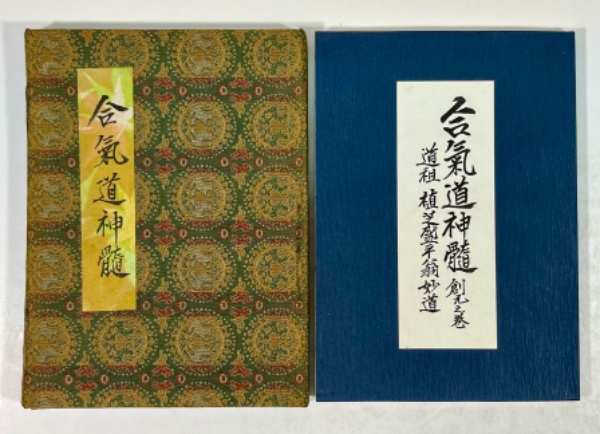 合氣道神髓
合氣道神髓 創元之巻
道祖 植芝盛平翁妙道